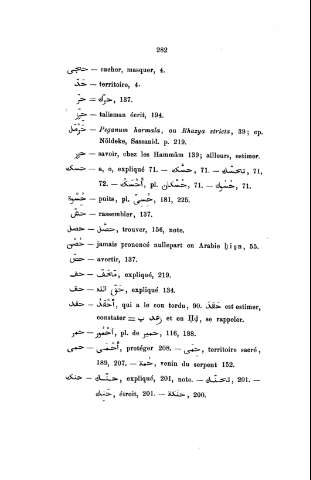 282
حجى — cacher, masquer, 4.
حدّ — territoire, 4.
حرّ = حرك, 137.
حرز — talisman écrit, 194.
حرمل — Peganum harmala, ou Rhazya stricta, 39; cp.
Nöldeke, Sassanid. p. 219.
حزر — savoir, chez les Hammâm 139; ailleurs, estimer.
حسك — a, o, expliqué 71. — حسك, 71. — تحسّك, 71,
72. — أحسك, pl. حسكان, 71. — حسيك, 71.
— puits, pl. حسى, 181, 225.
حشّ — rassembler, 137.
حصل — حصّل, trouver, 156, note.
حصن — jamais prononcé nullepart en Arabie ḥiṣn, 55.
— avertir, 137.
حف — , expliqué, 219.
حق — حقّ الله, expliqué 134.
حقد — أحقد, qui a le cou tordu, 90. حقد est estimer,
constater = et en Ḥḍ, se rappeler.
حمر — أحمور, pl. de حمير, 116, 198.
حمى — أحمى, protéger 208. — حمى, territoire sacré,
189, 207. — حمة, venin du serpent 152.
حنك — حنّك, expliqué, 201, note. — تحنّك, 201. —
حنيك, écrois, 201. — حنكة, 200.